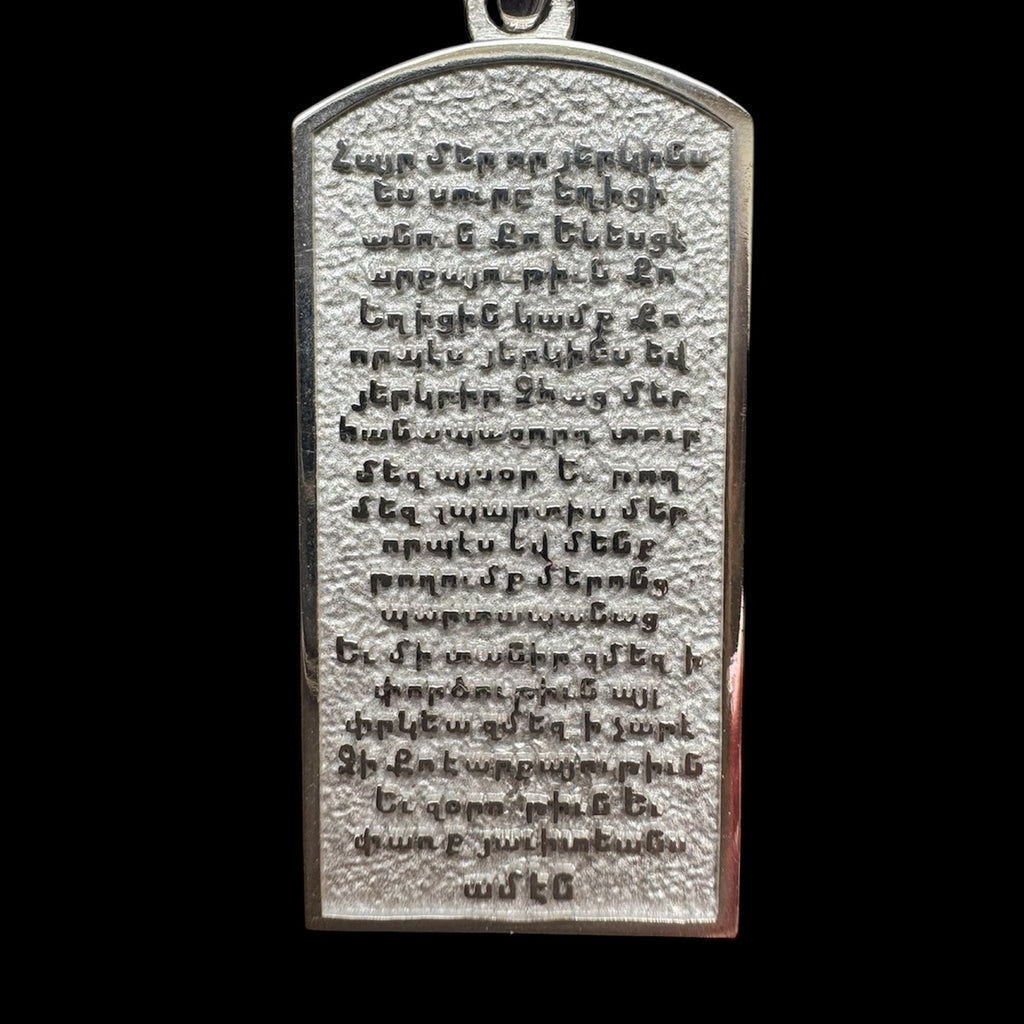 Հայր մեր որ յերկինս
ես սուրբ եղիցի
անուն Քո Եկեսցէ
արքայութիւն Քո
Եղիցին կամք Քո
որպէս յերկինս եվ
յերկրիր Զհաց մեր
հանապազորդ տուր
մեզ այսօր Եւ թող
մեզ զպարտիս մեր
որպէս եվ մենք
թողումք մերոնց
պարտապանաց
Եւ մի տանիր զմեզ ի
փորձութիւն այլ
փրկեա զմեզ ի չարէ
Զի Քո է արքայութիւն
Եւ զօրութիւն Եւ
փառք յաւիտեանս
ամէն